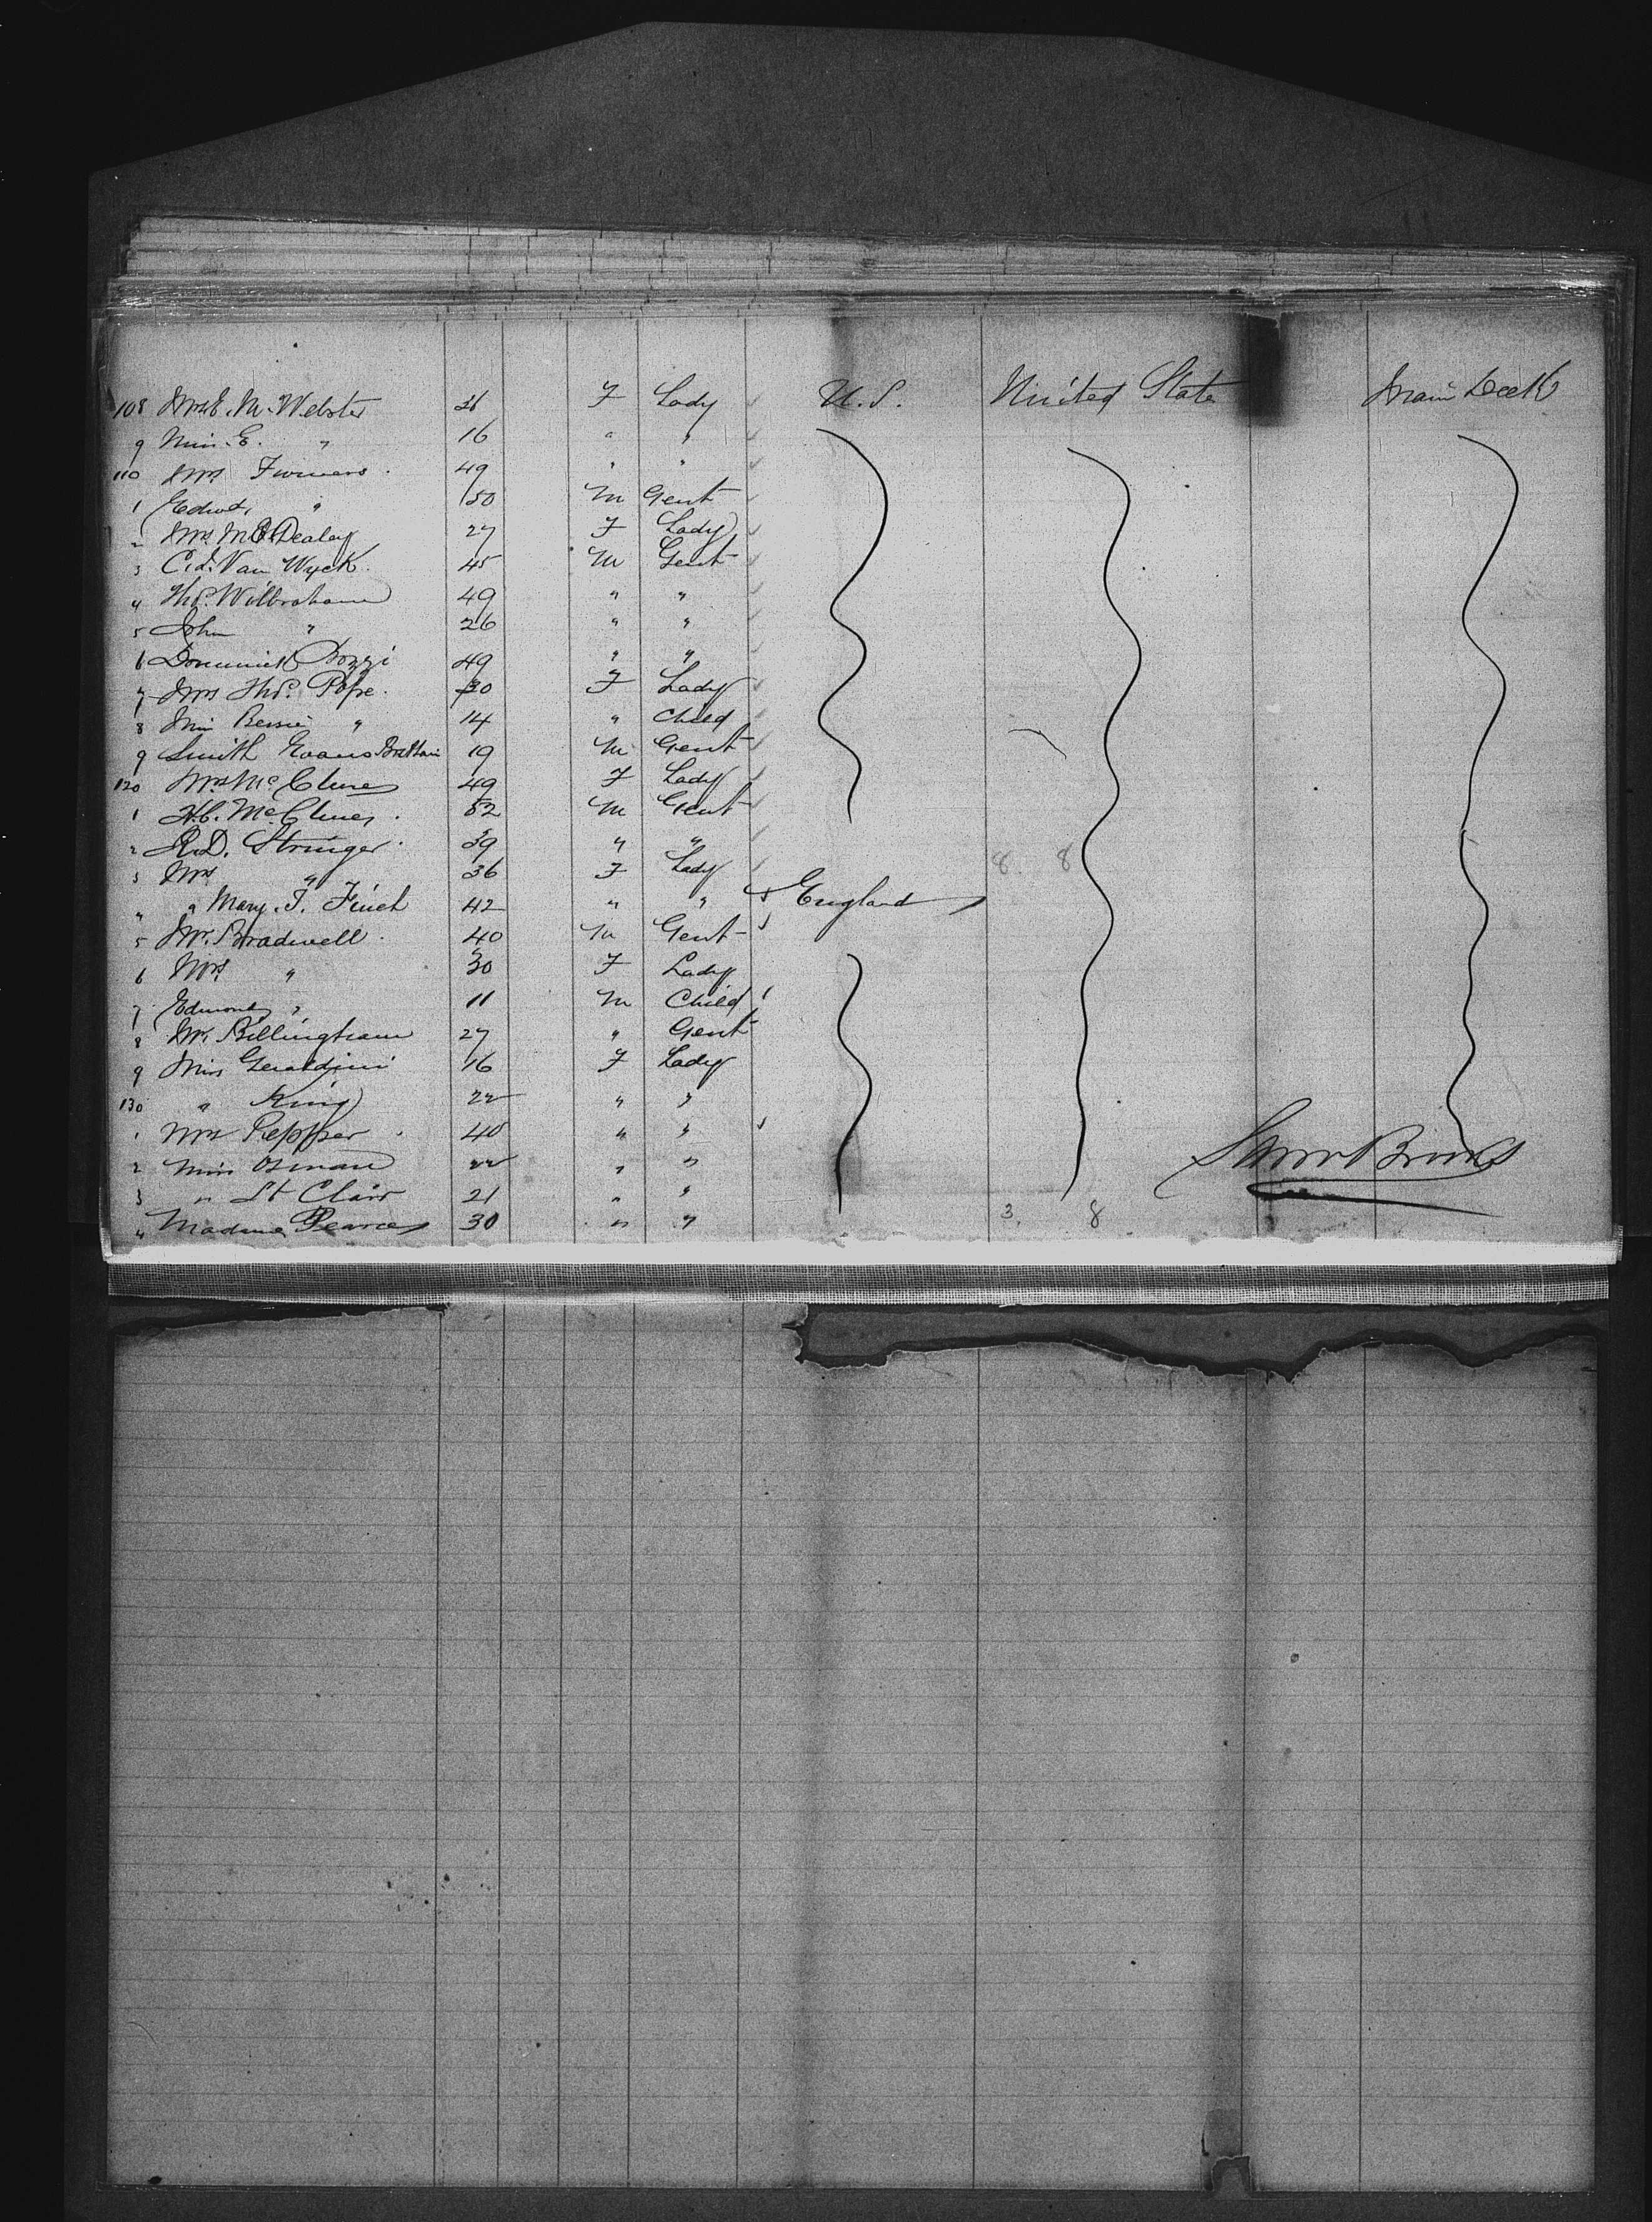 108 Mrs E. M. Webster 21 F Lady U.S. United State Main Deck
9 Miss E. " 16 " "
110 Mrs Furness 49 " "
1 Edwd. " 50 M Gent
2 Mrs M. Dealey 27 F Lady
3 C. d. Van Wyck 45 M Gent
4 Thos. Wilbraham 49 " "
5 John " 26 " "
6 Dominick Bozzi 49 " "
7 Mrs Thos. Pope 30 F Lady
8 Miss Bessie " 14 " Child
9 Smith Evans Brittain 19 M Gent
120 Mrs McClure 49 F Lady
1 H.C. McClure 52 M Gent
2 R.D. Stringer 39 " "
3 Mrs " 36 F Lady 8. 8
" " Mary. T. Finch 42 " " England
5 Mr. Bradwell 40 M Gent
6 Mrs " 30 F Lady
7 Edmond " 11 M Child
8 Mr. Billingham 27 " Gent
9 Miss Geraldini 16 F Lady
130 " King 22 " "
1 Mrs Pepper 40 " "
2 Miss Osman 22 " "
3 " St Clair 21 " "
4 Madame Pearce 30 " " 3. 8